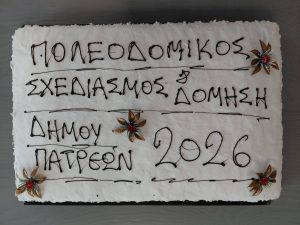 ΠΟΛΕΟΔΟΜΙΚΟΣ
ΣΧΕΔΙΑΣΜΟΣ & ΔΟΜΗΣΗ
ΔΗΜΟΥ
ΠΑΤΡΕΩΝ 2026